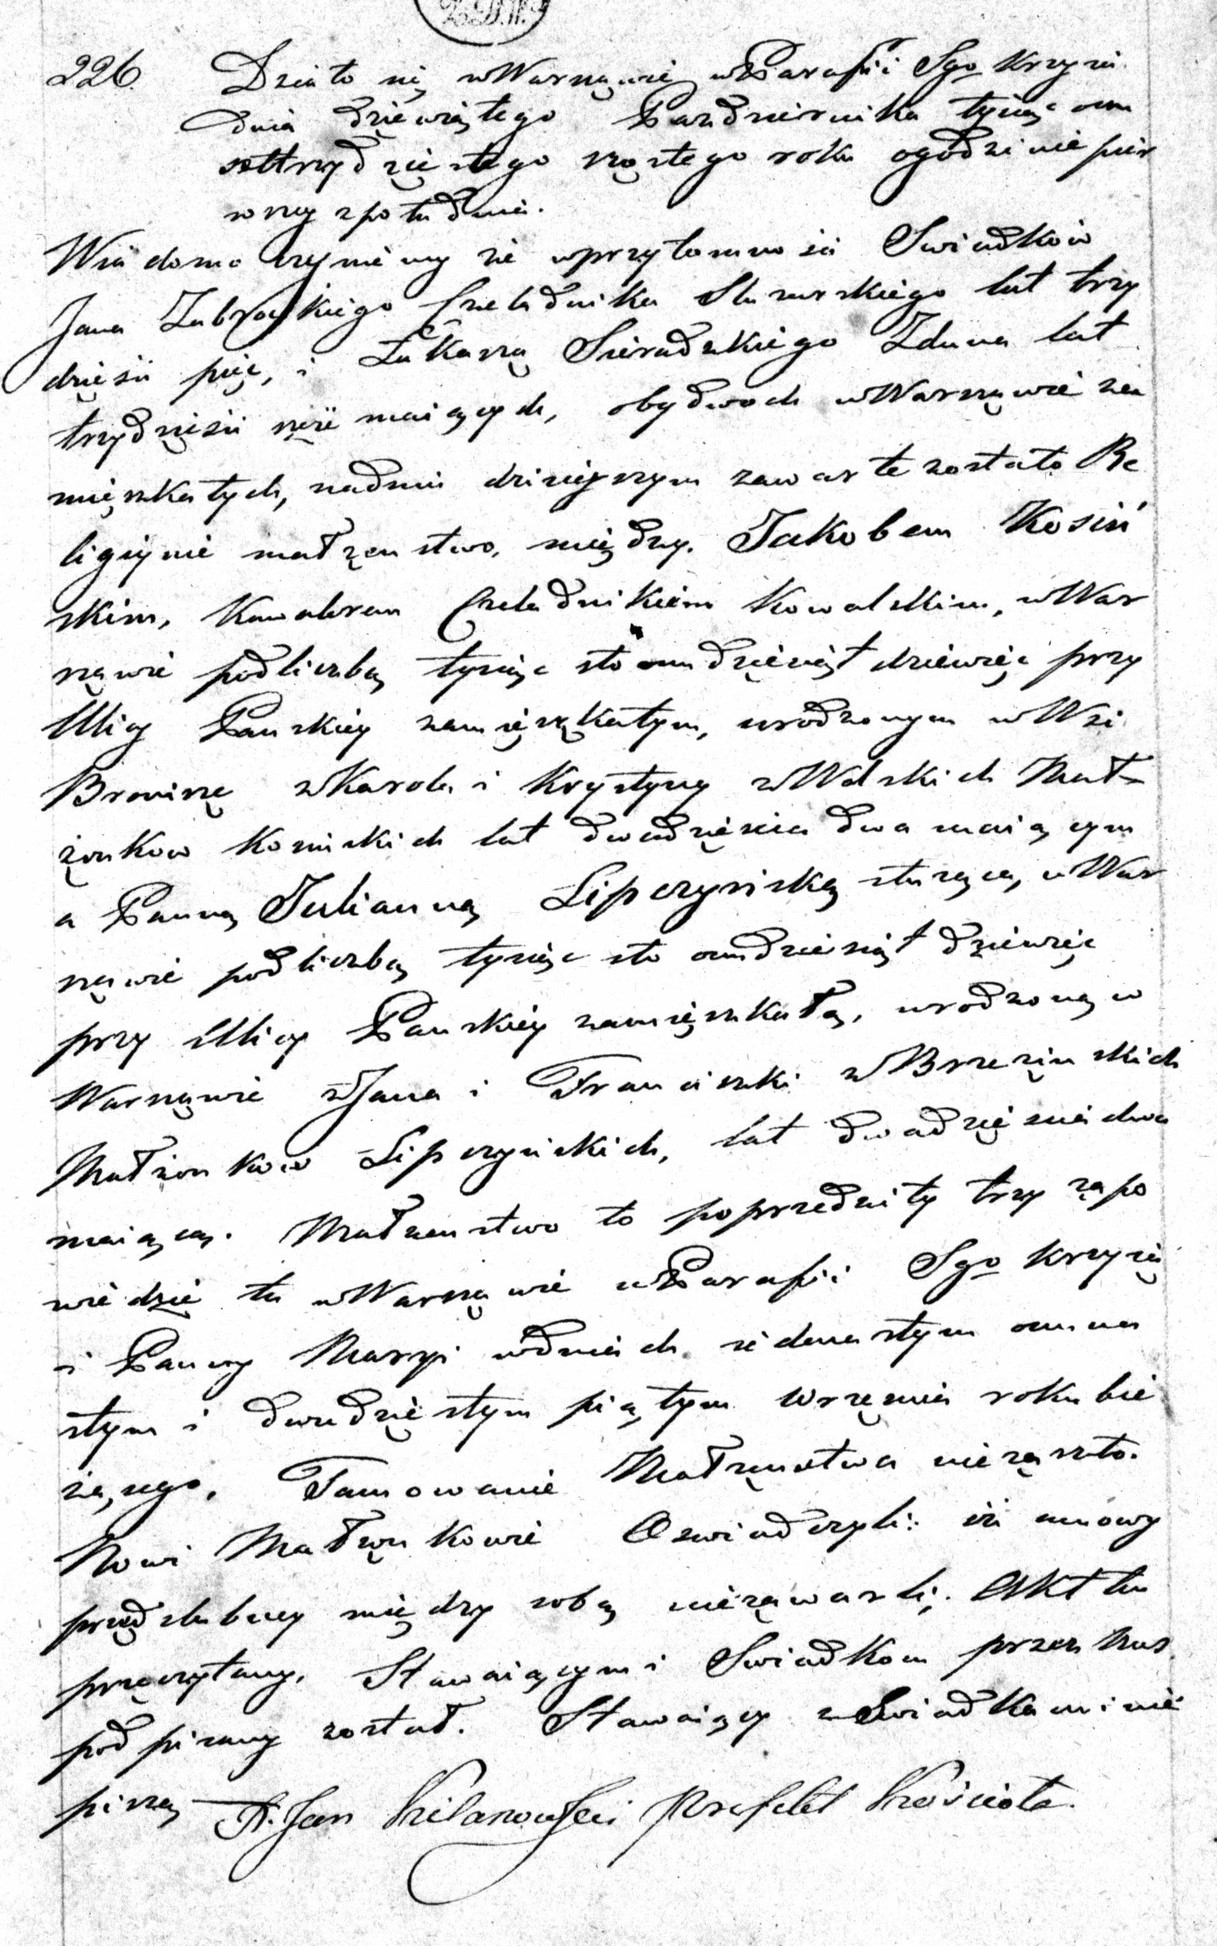 226. Działo się w Warszawie w Parafii Sgo Krzyża
dnia dziewiątego Pazdziernika tysiąc osm
set trzydziestego szostego roku o godzinie pier
wszey z południa.
Wiadomo czyniemy że w przytomności Swiadków
Jana Zabraskiego Czeladnika Slusarskiego lat trzy
dzieści pięć, i Łukasza Sieradzkiego Zduna lat
trzydzieści sześć maiących, obydwoch w Warszawie za
mieszkałych, na dniu dzisieyszym zawarte zostało Re
ligiynie małżenstwo, między Jakobem Kosiń
skim, Kawalerem Czeladnikiem Kowalskim, w War
szawie pod liczbą tysiąc sto osmdziesiąt dziewięć przy
Ulicy Panskiey zamieszkałym, urodzonym w Wsi
Bronisze z Karola i Krystyny z Wolskich Mał
żonkow Kosinskich lat dwadzieścia dwa maiącym
a Panną Julianną Lipczyńską służącą, w War
szawie pod liczbą tysiąc sto osmdziesiąt dziewięć
przy Ulicy Panskiey zamieszkałą, urodzoną w
Warszawie z Jana i Franciszki z Brzezinskich
Małżonkow Lipczynskich, lat dwadzieścia dwa
maiącą. Małżenstwo to poprzedziły trzy zapo
wiedzie tu w Warszawie w Parafii Sgo Krzyża
i Panny Maryi w dniach iedenastym osmna
stym i dwudziestym piątym Września roku bie
żącego. Tamowanie Małżenstwa nie zaszło.
Nowi Małżonkowie Oswiadczyli: iż umowy
przedslubney między sobą nie zawarli. Akt ten
przeczytany, Stawaiącym i Swiadkom przez Nas
podpisany został. Stawaiący z Swiadkami nie
piszą X. Jan Kilanowski Prefekt Kościoła.